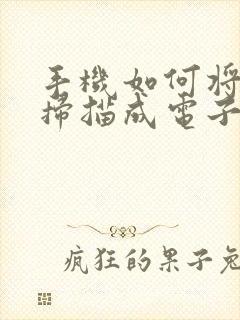 手機如何將
掃描成電子
瘋狂的果子兔